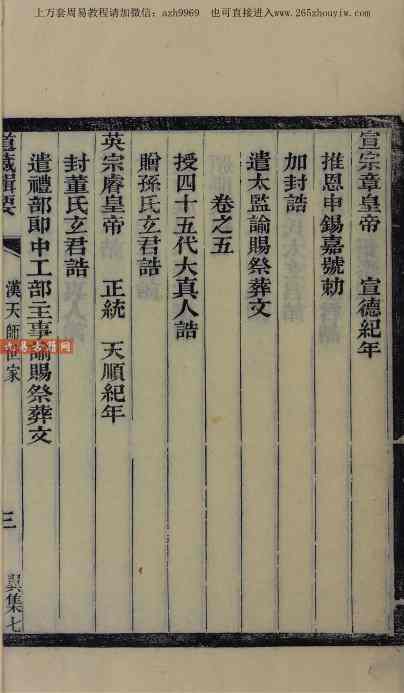 上万套周易教程请加微信：azh9969 也可直接进入www.265zhouyiw.com
宣宗章皇帝 宣德紀年
推恩申錫嘉號勅
加封誥
遣太監諭賜祭葬文
卷之五
授四十五代大真人誥
贈孫氏玄君誥
英宗睿皇帝 正統 天順紀年
封董氏玄君誥
遣禮部郎中工部主事諭賜祭葬文
道藏輯要 漢天師世家 三 翼集七